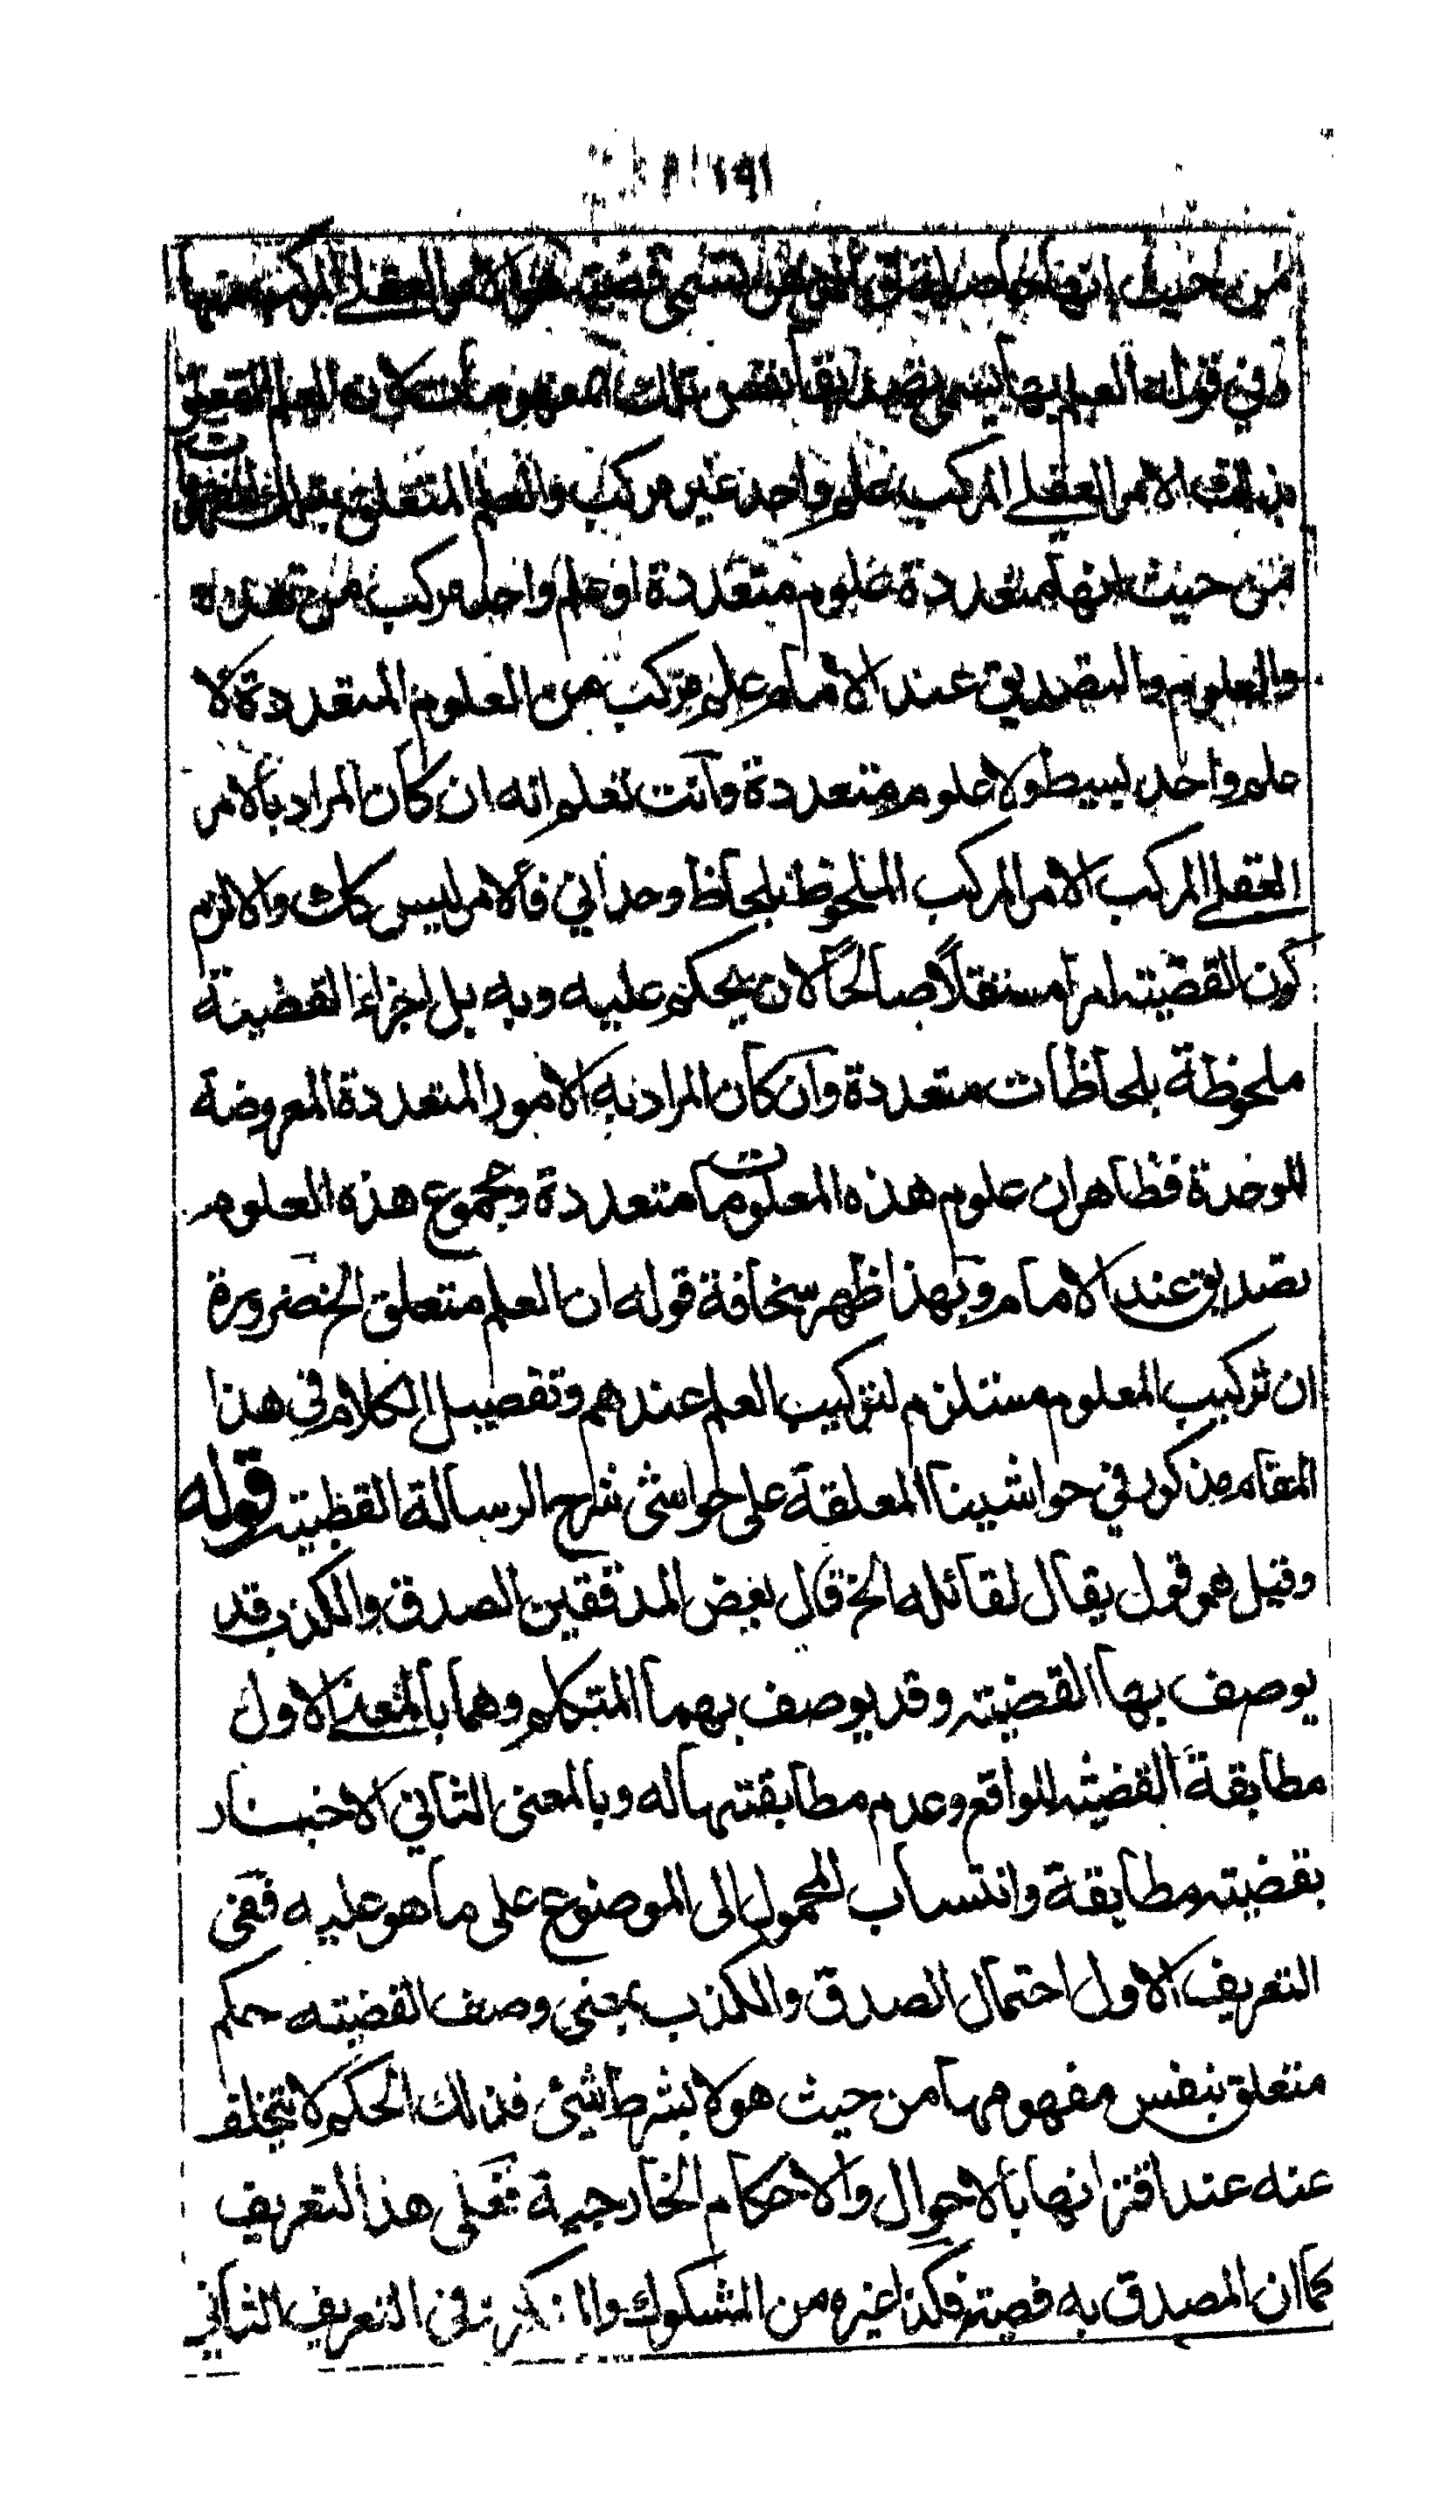 ١٩١
من حيث انها حاصلة في الذهن تسمى قضية هو الامر العقلي المركب منها
وفي قوله العلم بها يسمى تصديقا نفس تلك المفهومات لان العلم المتعلق
بذلك الامر العقلي المركب علم واحد غير مركب والعلم المتعلق بتلك المفهومات
من حيث انها متعددة علوم متعددة او علم واحد مركب من تعدد
والعلوم والتصديق عند الامام علم مركب من العلوم المتعددة لا
علم واحد بسيط ولا علوم متعددة وانت تعلم انه ان كان المراد بالامر
العقلي المركب الامر المركب الملحوظ بلحاظ وحداني فالامر ليس كذلك والا لزم
كون القضية امرا مستقلاً صالحاً لان يحكم عليه وبه بل اجزاء القضية
ملحوظة بلحاظات متعددة وان كان المراد به الامور المتعددة المعروضة
للوحدة فظاهر ان علوم هذه المعلومات متعددة ومجموع هذه العلوم
تصديق عند الامام وبهذا ظهر سخافة قوله ان العلم متعلق الخ ضرورة
ان تركيب المعلوم مستلزم لتركيب العلم عندهم وتفصيل الكلام في هذا
المقام مذكور في حواشينا المعلقة على حواشى شارح الرسالة القطبية قوله
وقيل هو قول يقال لقائله الخ قال بعض المدققين الصدق والكذب قد
يوصف بها القضية وقد يوصف بهما المتكلم وهما بالمعنى الاول
مطابقة القضية للواقع وعدم مطابقتها له وبالمعنى الثاني الاخبار
بقضية مطابقة وانتساب المحمول الى الموضوع على ما هو عليه ففى
التعريف الاول احتمال الصدق والكذب بمعنى وصف القضية حكم
متعلق بنفس مفهومها من حيث هو لا بشرط شيئ فذلك الحكم لا يتخلف
عنه عند اقترانها بالاحوال والاحكام الخارجية فعلى هذا التعريف
كما ان المصدق به قضية فكذا غيره من المشكوك والمذكور في التعريف الثاني